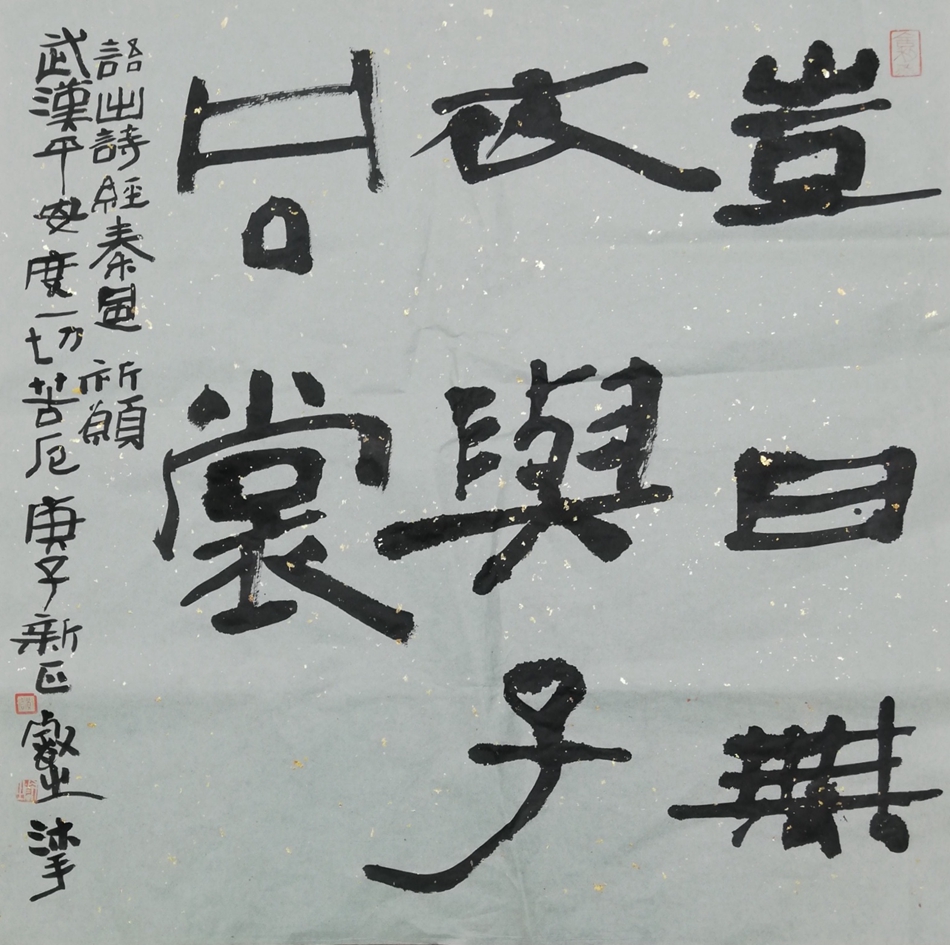 豈曰無
衣與子
同裳
語出詩經秦風 祈願
武漢平安度一切苦厄 庚子新正 叡之 沐手